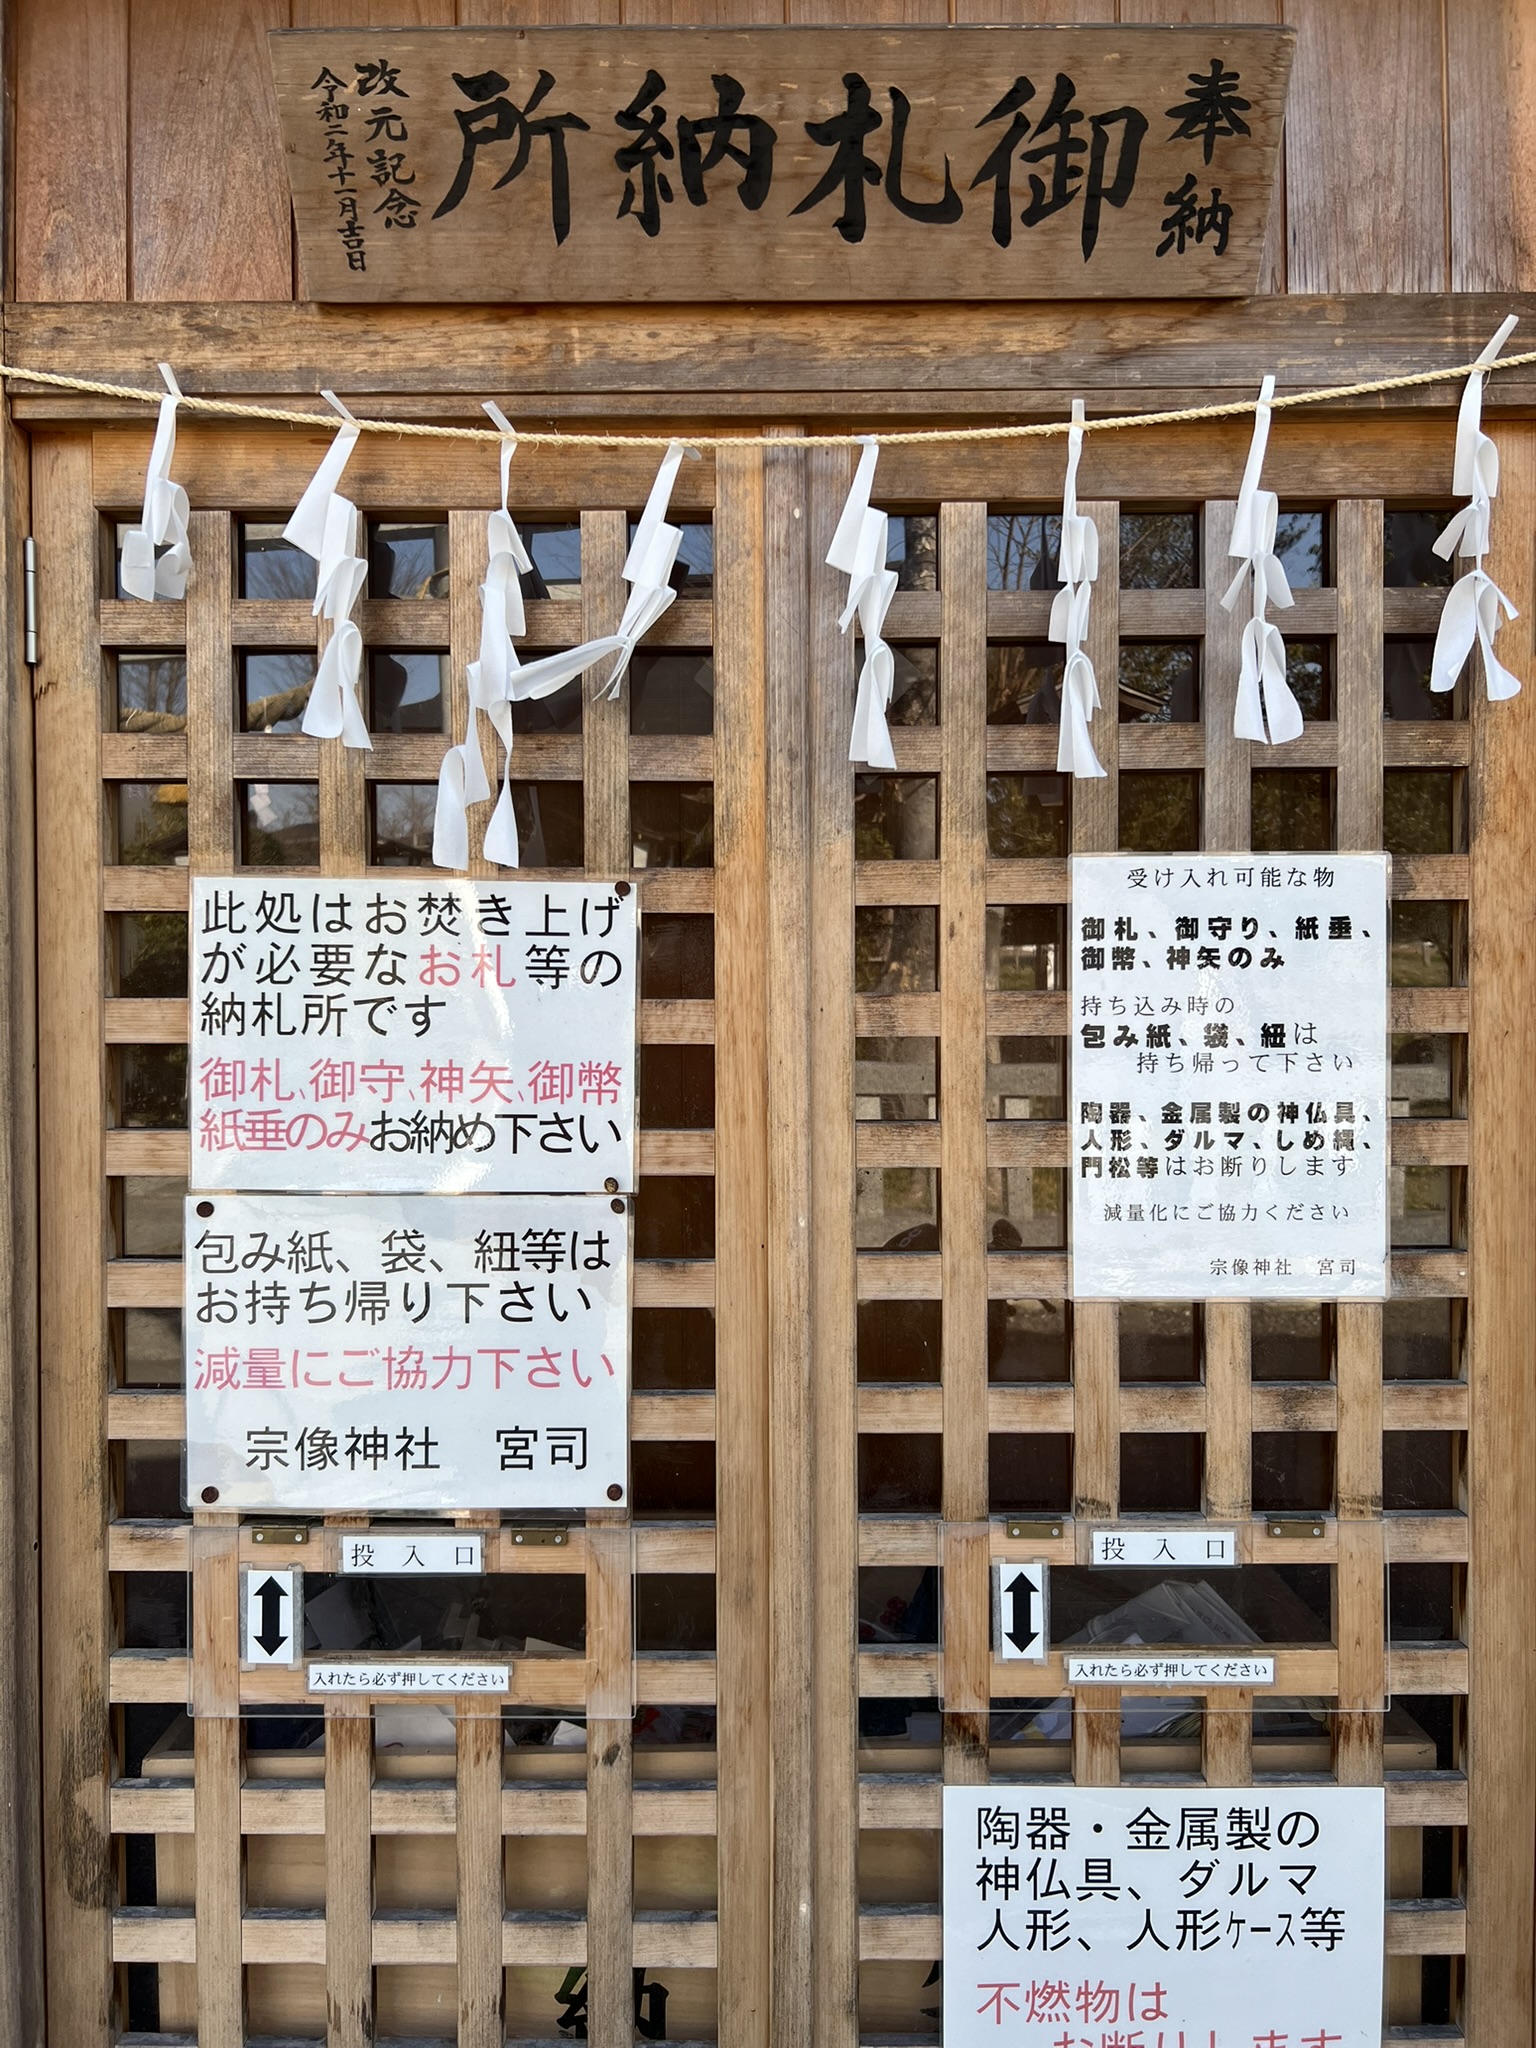 奉納
御札納所
改元記念
令和二年十一月吉日
此処はお焚き上げ
が必要なお札等の
納札所です
御札、御守、神矢、御幣
紙垂のみお納め下さい
包み紙、袋、紐等は
お持ち帰り下さい
減量にご協力下さい
宗像神社 宮司
投入口
入れたら必ず押してください
受け入れ可能な物
御札、御守り、紙垂、
御幣、神矢のみ
持ち込み時の
包み紙、袋、紐は
持ち帰って下さい
陶器、金属製の神仏具、
人形、ダルマ、しめ縄、
門松等はお断りします
減量化にご協力ください
宗像神社 宮司
投入口
入れたら必ず押してください
陶器・金属製の
神仏具、ダルマ
人形、人形ｹｰｽ等
不燃物は
お断りします
納